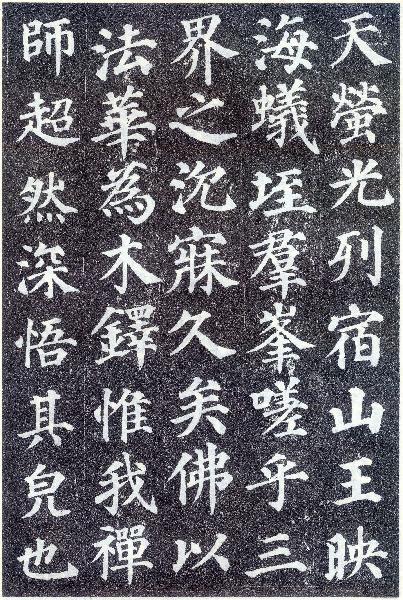 天螢光列宿山王映
海蟻垤羣峯嗟乎三
界之沉寐久矣佛以
法華為木鐸惟我禪
師超然深悟其皃也